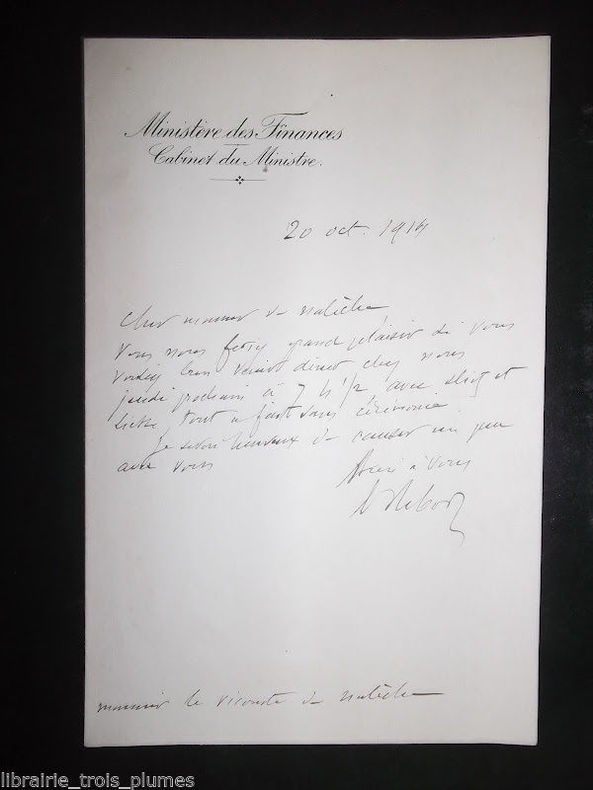 Ministère des Finances
Cabinet du Ministre.
20 oct. 1914
Cher monsieur de
Vous nous feriez grand plaisir si vous
vouliez bien venir diner chez nous
jeudi prochain à 7 h 1/2 avec et
tout à fait sans cérémonie.
Je serai heureux de causer un peu
avec vous
à vous
monsieur le vicomte de
librairie_trois_plumes